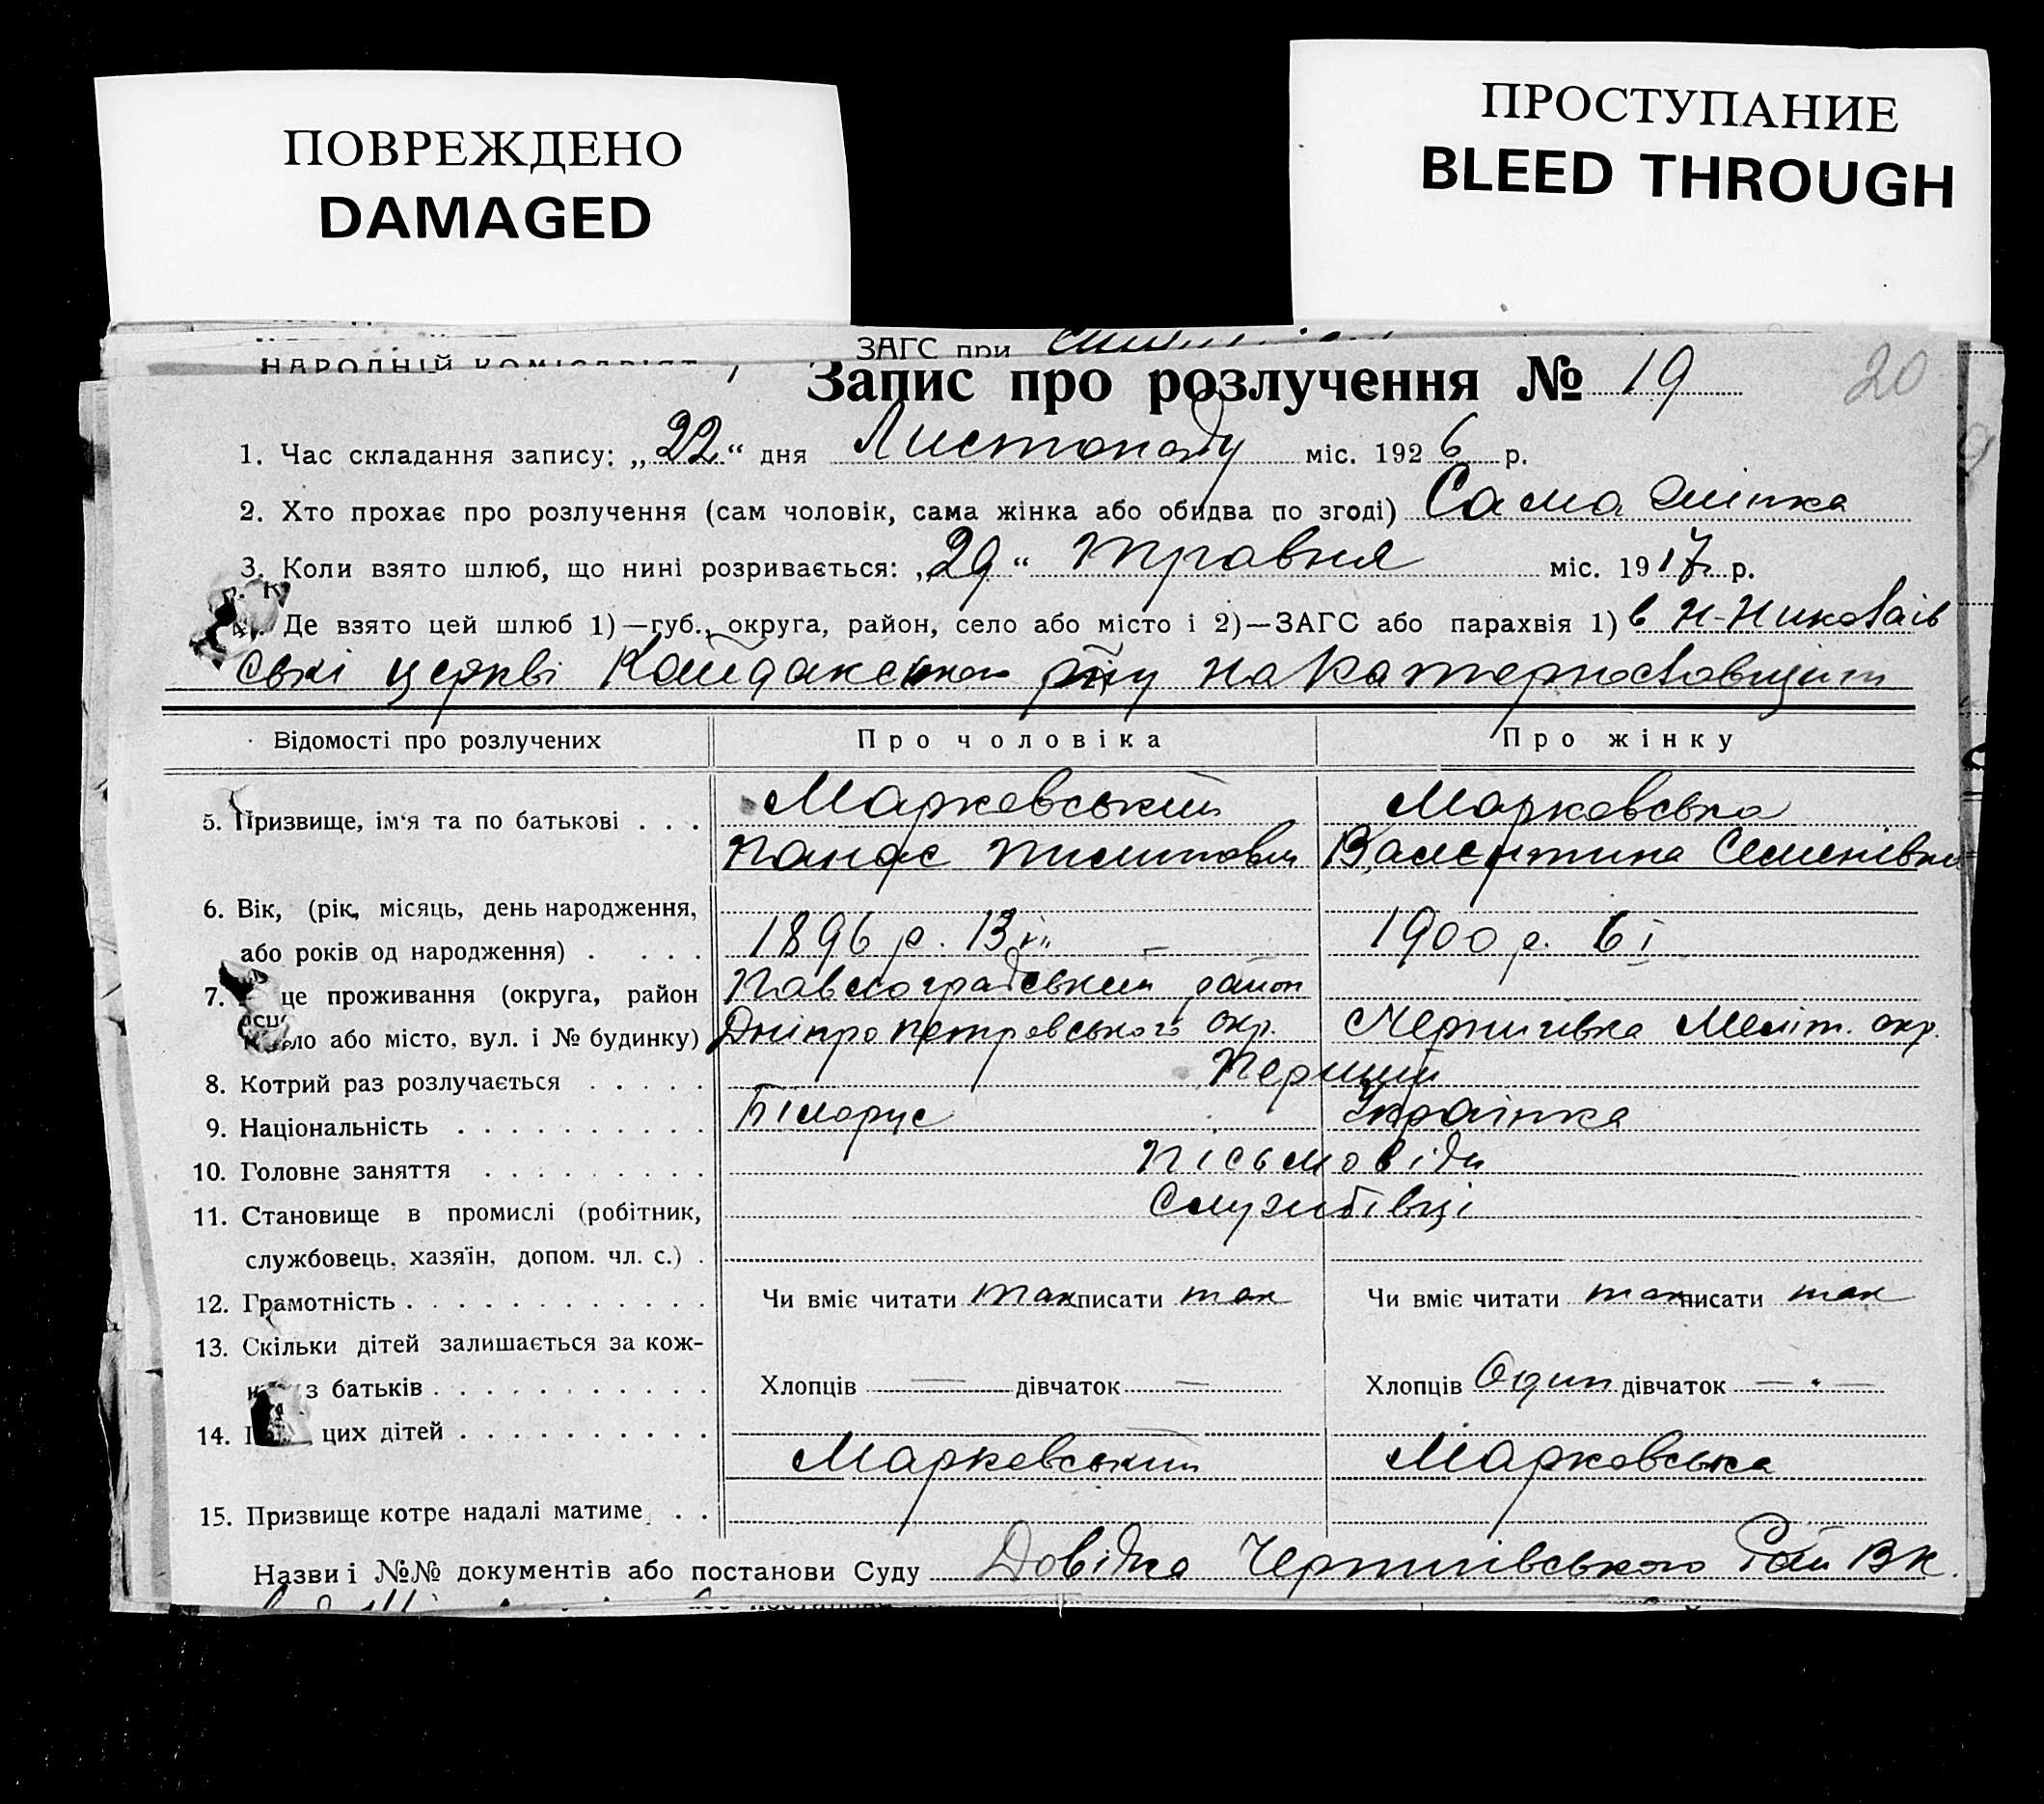 ПОВРЕЖДЕНО
DAMAGED
ПРОСТУПАНИЕ
BLEED THROUGH
ЗАГС при
НАРОДНІЙ КОМІСАРІЯТ
Запис про розлучення № 19
20
1. Час складання запису: „22“ дня Листопаду міс. 1926 р.
2. Хто прохає про розлучення (сам чоловік, сама жінка або обидва по згоді) Сама жінка
3. Коли взято шлюб, що нині розривається: „29“ травня міс. 1917 р.
4. Де взято цей шлюб 1)—губ., округа, район, село або місто і 2)—ЗАГС або парахвія 1) в Н-Николаїв
ські церкві р-ну на Катеринославщині
Відомості про розлучених Про чоловіка Про жінку
5. Призвище, ім'я та по батькові . . . Марковський Марковська
Панас Пилипович Валентина Семенівна
6. Вік, (рік, місяць, день народження,
або років од народження) . . . . . 1896 р. 13 1900 р. 6 I
7. це проживання (округа, район Павлоградський район
ло або місто, вул. і № будинку) Дніпропетровського окр. Чернигівка Меліт. окр.
8. Котрий раз розлучається . . . . . Перший
9. Національність . . . . . . . . . . Білорус Українка
10. Головне заняття . . . . . . . . . Пісьмовіди
11. Становище в промислі (робітник, Службівці
службовець, хазяїн, допом. чл. с.) .
12. Грамотність . . . . . . . . . . . . Чи вміє читати так писати так Чи вміє читати так писати так
13. Скільки дітей залишається за кож-
з батьків . . . . . . . . . . . Хлопців — дівчаток — Хлопців Один дівчаток — „ —
14. цих дітей . . . . . . . . . .
Марковський Марковська
15. Призвище котре надалі матиме . .
Назви і №№ документів або постанови Суду Довідка Чернигівського Рай ВК.